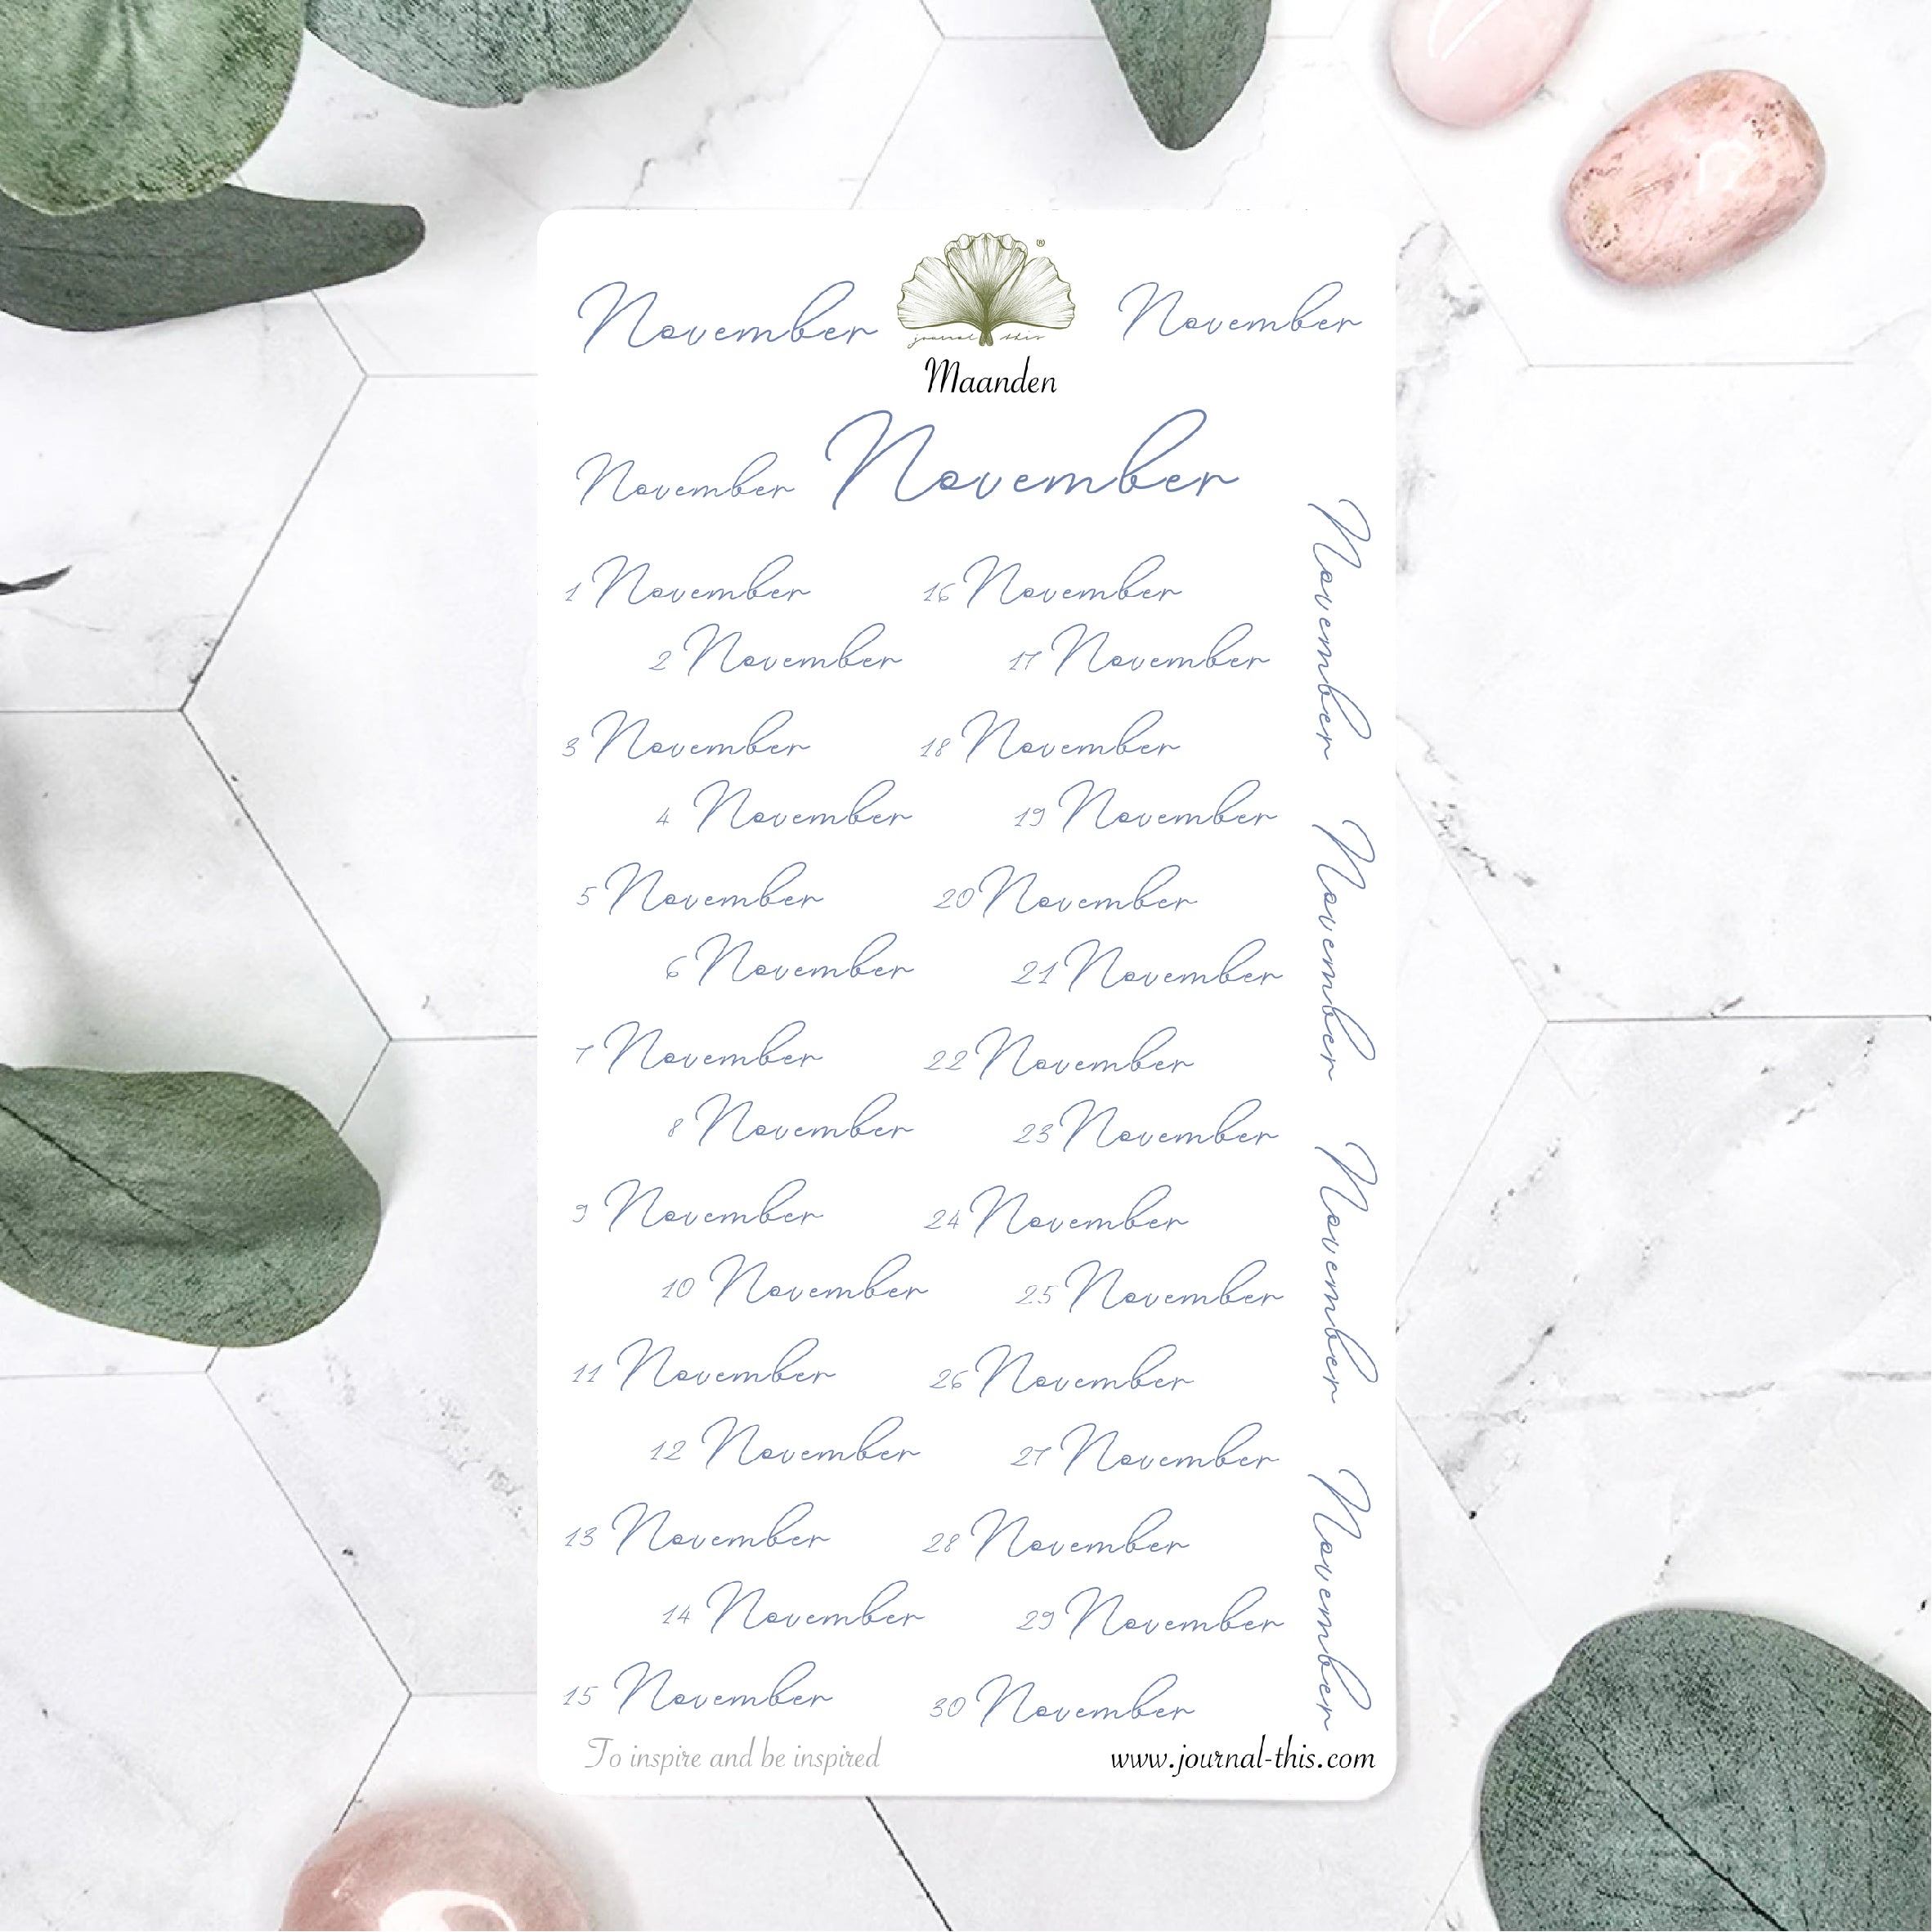 November
®
November
journal this
Maanden
November
November
1 November
2 November
3 November
4 November
5 November
6 November
7 November
8 November
9 November
10 November
11 November
12 November
13 November
14 November
15 November
16 November
17 November
18 November
19 November
20 November
21 November
22 November
23 November
24 November
25 November
26 November
27 November
28 November
29 November
30 November
November
November
November
November
To inspire and be inspired
www.journal-this.com